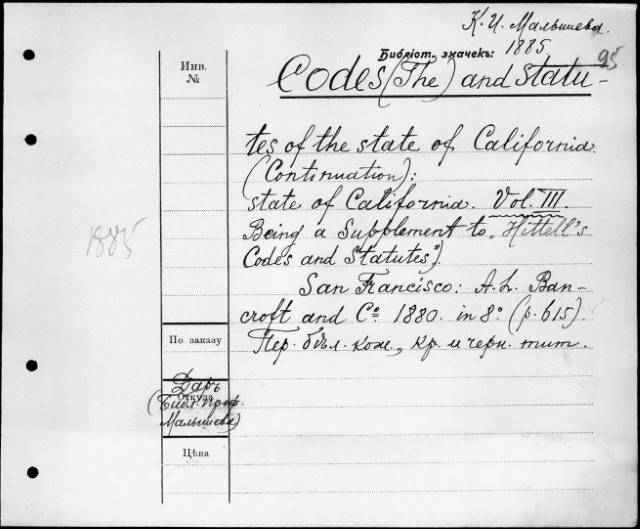 К. И. Малышева.
Библіот. значекъ: 1885
95
Инв.
№
Codes (The) and Statu-
tes of the state of California
(Continuation):
state of California. Vol. III.
Being a Supplement to „Hittell's
Codes and Statutes")
1885
San Francisco: A. L. Ban-
croft and Cº 1880. in 8º (p. 615).
По заказу
Пер. бѣл. кож., кр. и черн. тит.
Даръ
Откуда
(Библ. Проф.
Малышева)
Цѣна